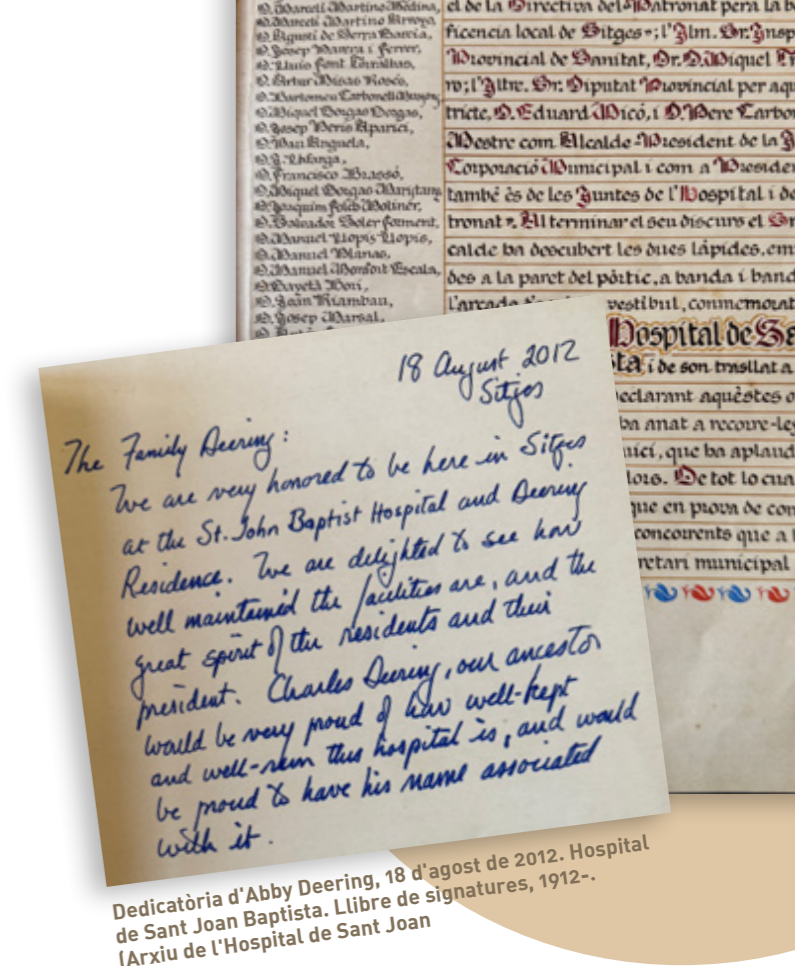 D. Marcelí Martino Medina,
D. Marcelí Martino Arroyo
D. Agustí de Serra Garcia,
D. Josep Manera i Ferrer,
D. Lluís Font Torralbas,
D. Artur Misas Rosés,
D. Bartomeu Carbonell
D. Miquel Borgas Borgas,
D. Josep Peris Aparici,
D. Pau Anguela,
D. J.
D. Francisco Brassó,
D. Miquel Borgas
D. Joaquim Folch Moliner,
D. Salvador Soler Forment,
D. Manuel Llopis Llopis,
D. Manuel Planas,
D. Manuel Monfort Escala,
D. Gayetà Bori,
D. Jaln Riambau,
D. Josep Marsal,
el de la Directiva del Patronat pera la b
ficencia local de Sitges»; l'Ilm. Sr. Insp
Provincial de Sanitat, Dr. D. Miquel
ro; l'Iltre. Sr. Diputat Provincial per aqu
tricte, D. Eduard Micó, i D. Pere Carbo
Mestre com Alcalde-President de la
Corporació Municipal i com a Presiden
també ès de les Juntes de l'Hospital i de
tronat». Al terminar el seu discurs el Sr
calde ha descubert les dues làpides, em
des a la paret del pòrtic, a banda i band
l'arcada vestibul, conmemorat
Hospital de Sa
ta, i de son trasllat a
eclarant aquèstes o
ha anat a recorre-les
nici, que ha aplaud
lors. De tot lo cua
que en prova de con
concorrents que a
retari municipal
18 August 2012
Sitges
The Family Deering:
We are very honored to be here in Sitges
at the St. John Baptist Hospital and Deering
Residence. We are delighted to see how
well maintained the facilities are, and the
great spirit of the residents and their
president. Charles Deering, our ancestor
would be very proud of how well-kept
and well-run this hospital is, and would
be proud to have his name associated
with it.
Dedicatòria d'Abby Deering, 18 d'agost de 2012. Hospital
de Sant Joan Baptista. Llibre de signatures, 1912-.
(Arxiu de l'Hospital de Sant Joan